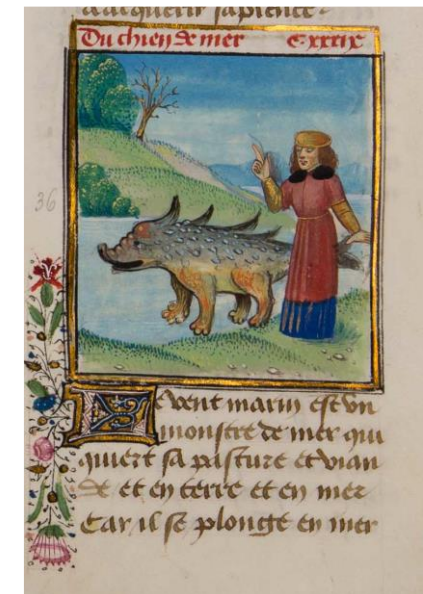 dacquerir sapience
Du chien de mer C xxxix
36
Le vent marin est vn
monstre de mer qui
quiert sa pasture et vian
de et en terre et en mer
Car il se plonge en mer